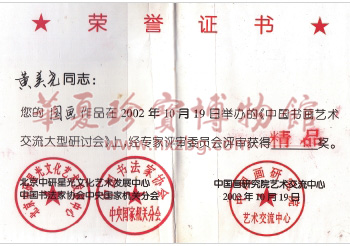 ★荣誉证书★
黄美尧同志：
您的 国画 作品在 2002 年 10 月 19 日举办的《中国书画艺术
交流大型研讨会》，经专家评审委员会评审获得 精品 奖。
北京中研星光文化艺术发展中心 中国画研究院艺术交流中心
中国书法家协会中央国家机关分会 2002 年 10 月 19 日
华夏珍宝博物馆
中央国家机关分会
艺术交流中心